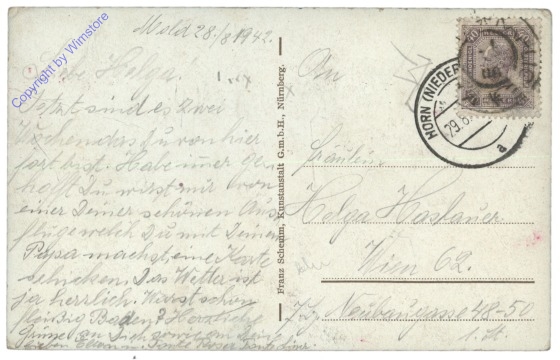 Copyright by Wimstore
Mold 28./8 1942.
Liebe Helga!
Jetzt sind es zwei
Wochen das Du von hier
fort bist. Habe immer ge
hofft Du wirst mir von
einer Deiner schönen Aus
flüge welch Du mit Deinem
Papa machst eine Karte
schicken. Das Wetter ist
ja herrlich. Warst schon
fleißig Baden? Herzliche
Grüße an Dich sowie an Deine
lieben Eltern
Franz Schemm, Kunstanstalt G.m.b.H., Nürnberg.
An
Fräulein
Helga Haslauer
Wien 62.
Neubaugasse 48-50
HORN (NIEDER
29.8.
a